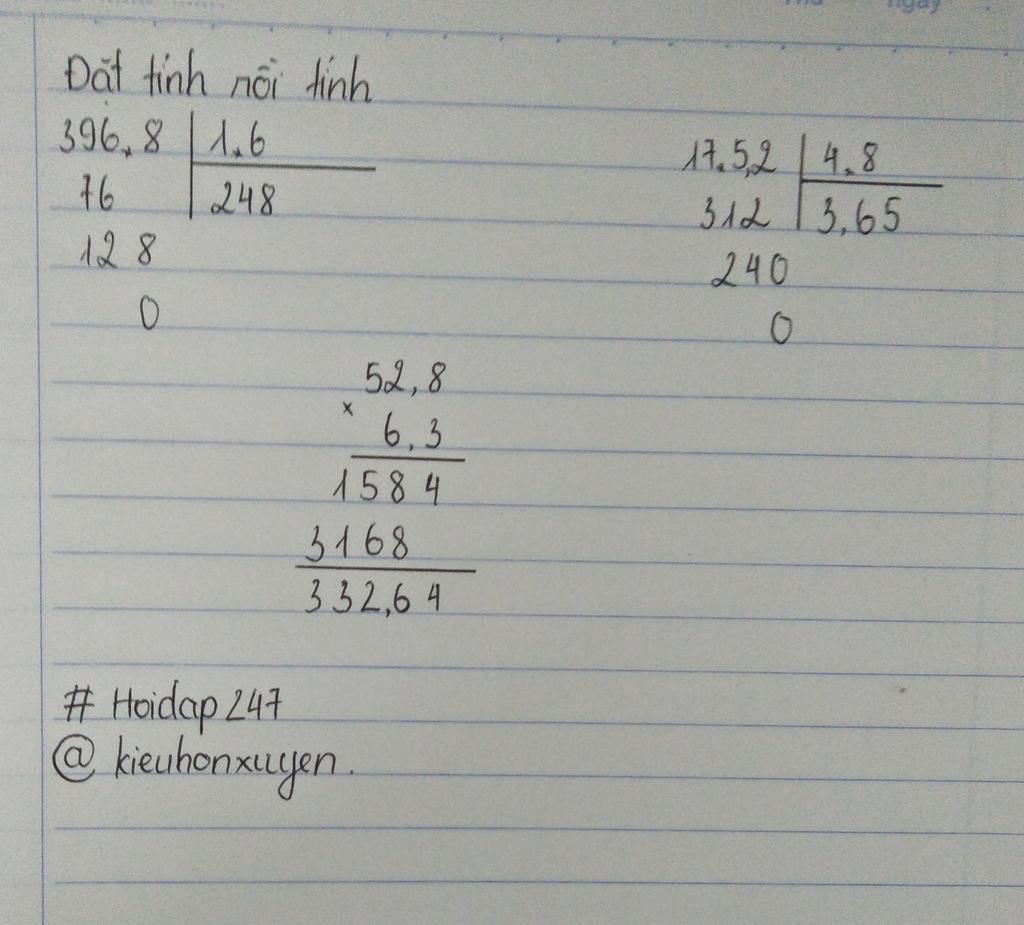 ngay
Đặt tính rồi tính
396,8 | 1,6
76 | 248
128
0
17,5,2 | 4,8
312 | 3,65
240
0
52,8
x
6,3
1584
3168
332,64
# Hoidap247
@ kieuhonxuyen.